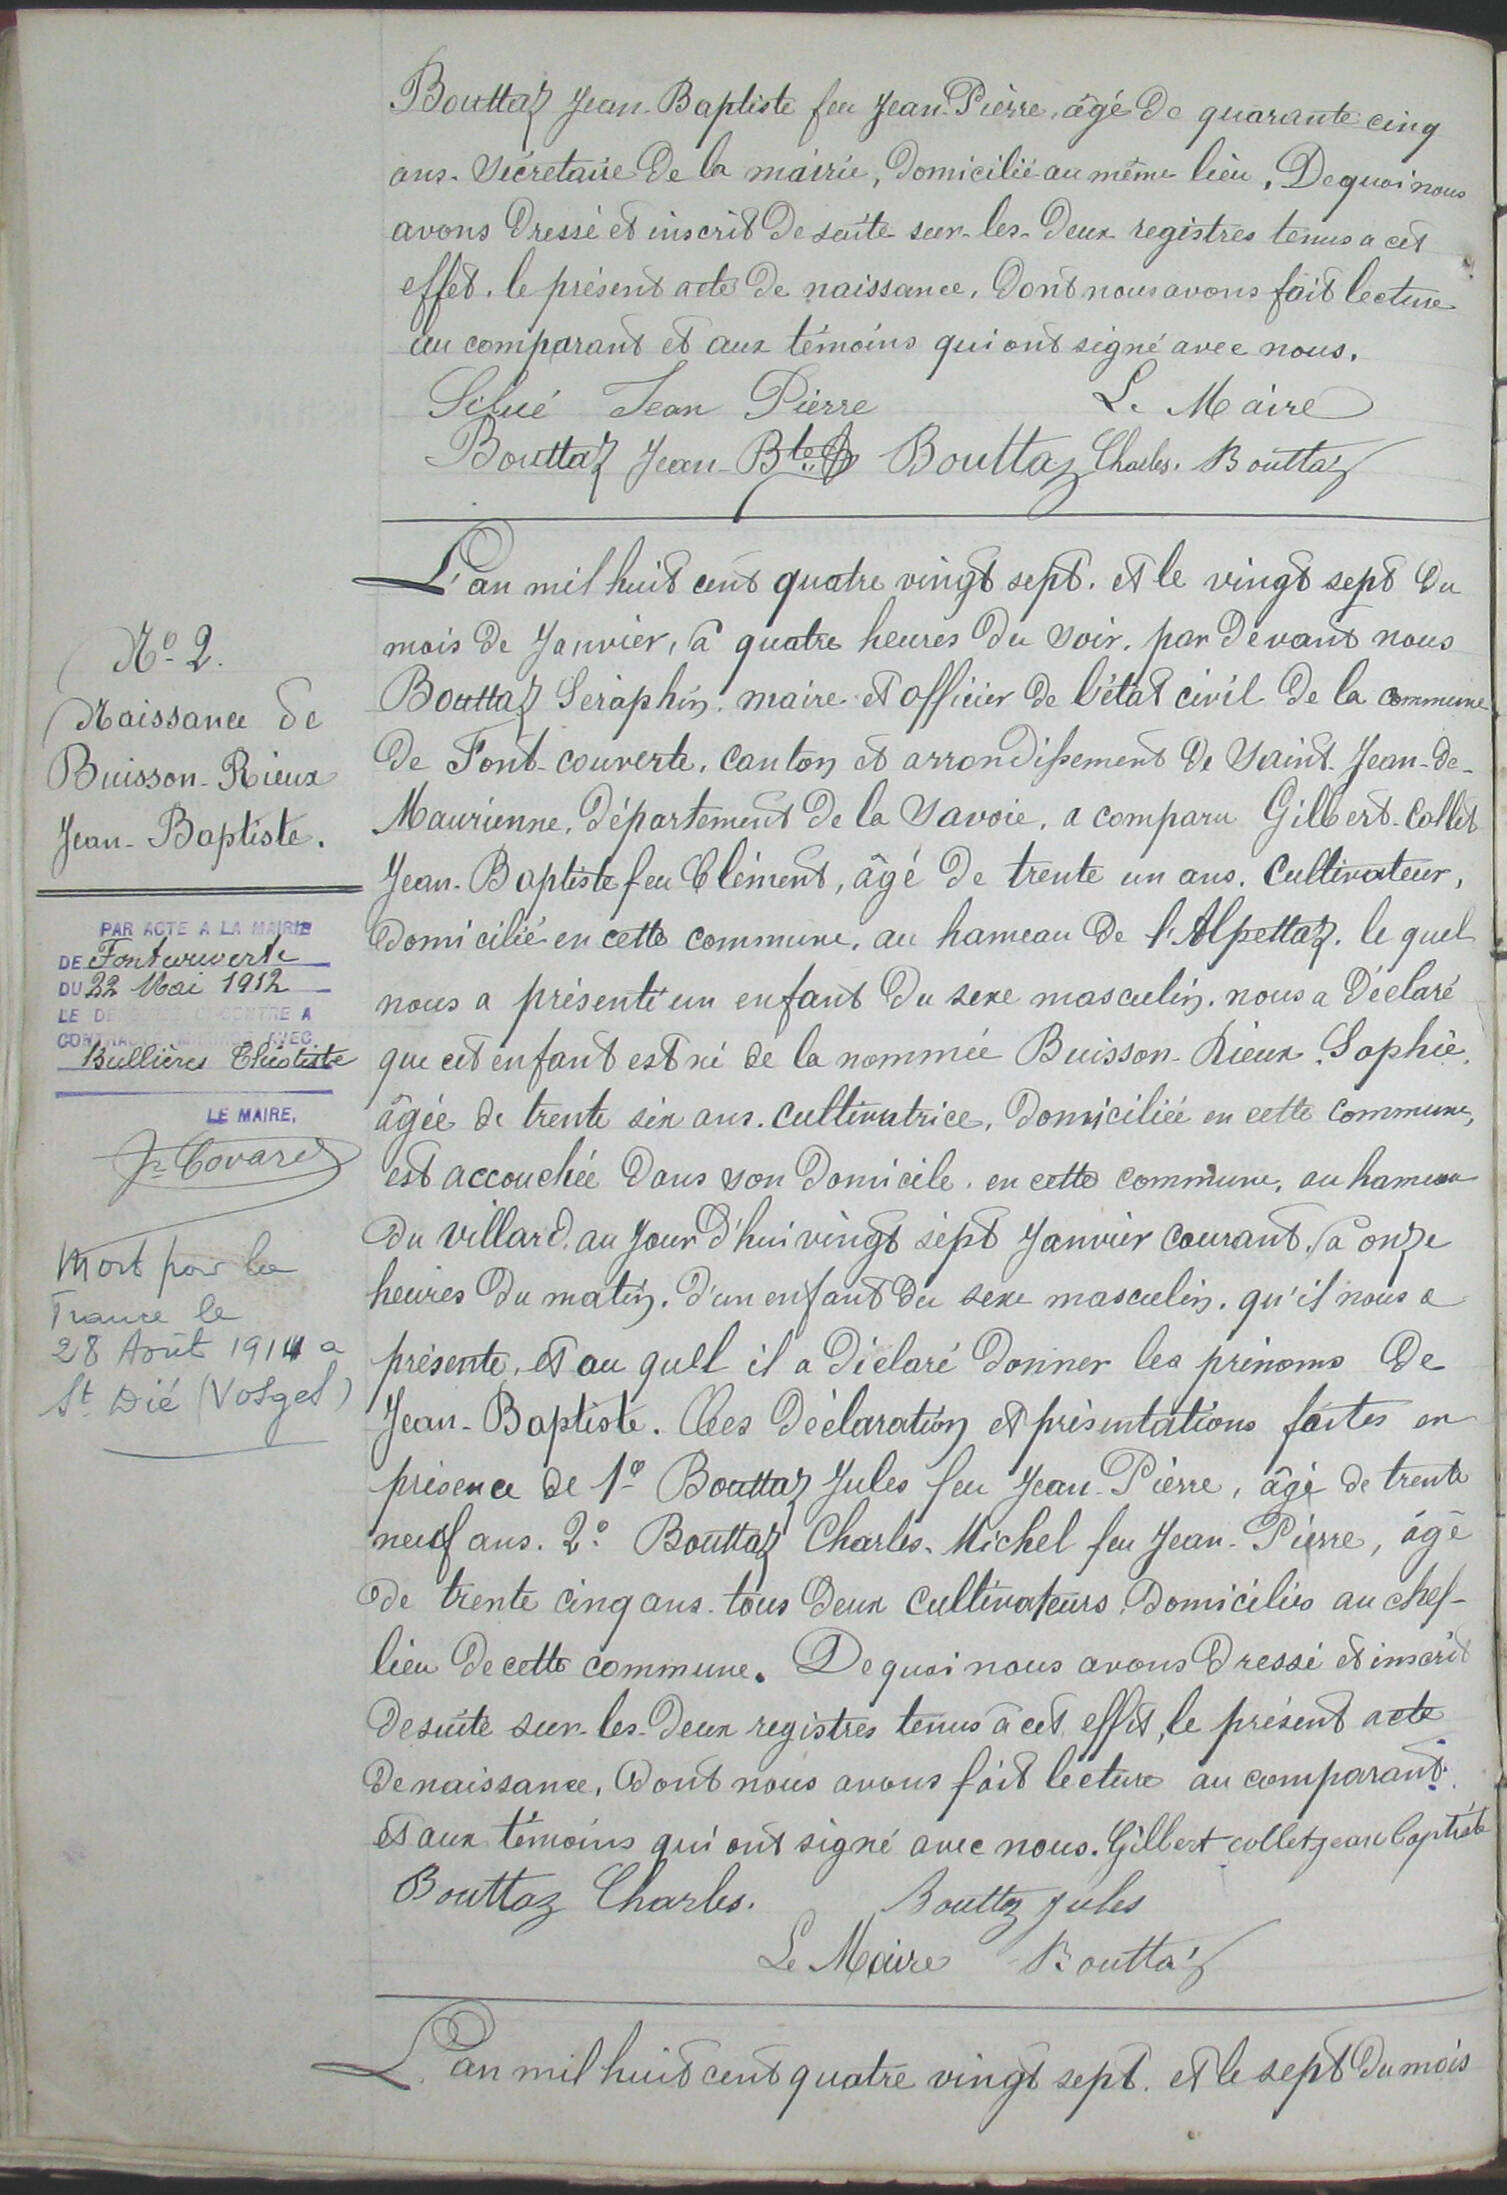 Bouttaz Jean-Baptiste feu Jean-Pierre, âgé de quarante cinq
ans. Sécretaire de la mairie, domicilié au même lieu. De quoi nous
avons dressé et inscrit de suite sur-les-deux registres tenus a cet
effet, le présent acte de naissance, dont nous avons fait lecture
au comparant et aux témoins qui ont signé avec nous.
Jean Pierre Le Maire
Bouttaz Jean-Bte Bouttaz Charles. Bouttaz
L'an mil huit cent quatre vingt sept. et le vingt sept du
mois de Janvier, à quatre heures du soir, par devant nous
Bouttaz Seraphin, maire et officier de l'état civil de la commune
de Font-couverte, canton et arrondissement de Saint-Jean-de-
Maurienne, département de la Savoie, a comparu Gilbert-Collet
Jean-Baptiste feu Clément, âgé de trente un ans. Cultivateur,
domicilié en cette commune, au hameau de l'Alpettaz, le quel
nous a présenté un enfant du sexe masculin, nous a déclaré
que cet enfant est né de la nommée Buisson-Rieux Sophie,
âgée de trente six ans. cultivatrice, domiciliée en cette commune,
est accouchée dans son domicile, en cette commune, au hameau
du Villard, au jour d'hui vingt sept Janvier courant, à onze
heures du matin, d'un enfant du sexe masculin, qu'il nous a
présente, et au quel il a déclaré donner les prénoms de
Jean-Baptiste. Les déclaration et présentations faites en
présence de 1º Bouttaz Jules feu Jean-Pierre, âgé de trente
neuf ans. 2º Bouttaz Charles-Michel feu Jean-Pierre, âgé
de trente cinq ans. tous deux cultivateurs, domiciliés au chef-
lieu de cette commune. De quoi nous avons dressé et inscrit
de suite sur-les-deux registres tenus à cet effet, le présent acte
de naissance, dont nous avons fait lecture au comparant
et aux témoins qui ont signé avec nous. Gilbert collet jean baptiste
Bouttaz Charles. Bouttaz jules
Le Maire Bouttaz
L'an mil huit cent quatre vingt sept. et le sept du mois
Nº 2.
Naissance de
Buisson-Rieux
Jean-Baptiste.
PAR ACTE A LA MAIRIE
DE Fontcouverte
DU 22 Mai 1912
LE DE CI-CONTRE A
CONTRACTÉ MARIAGE AVEC
Bullières Théotiste
LE MAIRE,
Covarel
Mort pour la
France le
28 Août 1914 a
St Dié (Vosges)